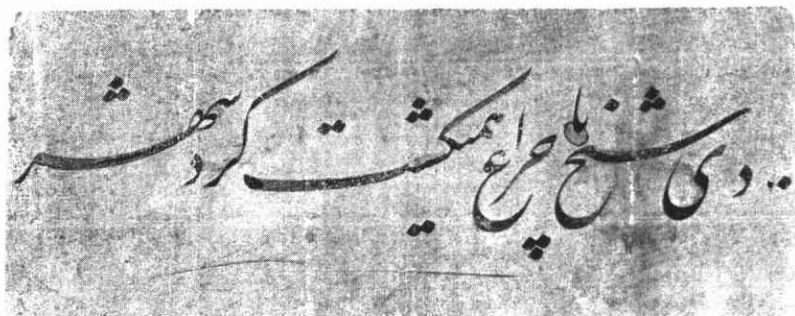 دی شیخ با چراغ همیگشت گرد شهر